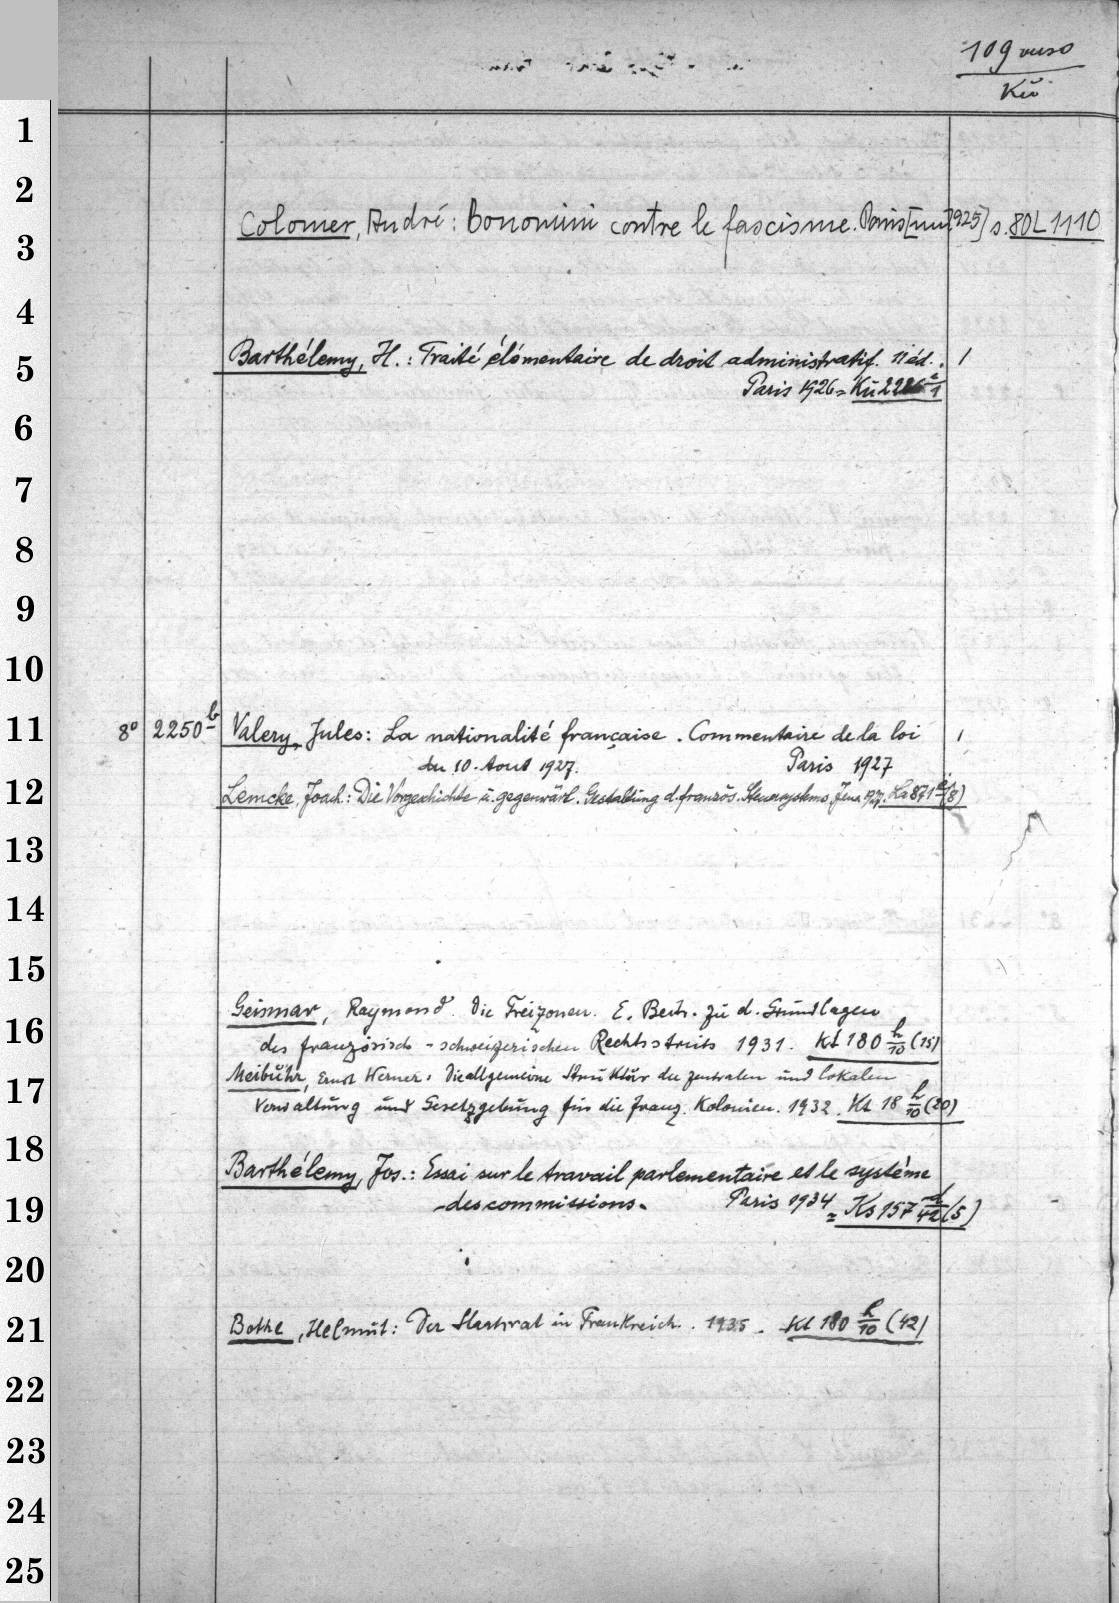 109 verso
Kü
1
2
Colomer, André: Bonomini contre le fascisme. Paris 1925] s. 80 L 1110
3
4
Barthélemy, H.: Traité élémentaire de droit administratif. 11 éd. 1
5
Paris 1926 =
6
7
8
9
10
11
8° 2250 b Valery, Jules: La nationalité française. Commentaire de la loi 1
du 10. Aout 1927. Paris 1927
12
Lemcke, Joach.: Die Vorgeschichte u. gegenwärt. Gestaltung d. französ. Steuersystems Jena 1927.
13
14
15
Geismar, Raymond. Die Freizonen. E. Beitr. zu d. Grundlagen
16
des französisch-schweizerischen Rechtsstreits 1931. Kt 180 h/10 (15)
Meibuhr, Ernst Werner: Die allgemeine Struktur der zentralen und lokalen
17
Verwaltung und Gesetzgebung für die franz. Kolonien. 1932. Kt 18 h/10 (20)
18
Barthélemy, Jos.: Essai sur le travail parlementaire et le système
19
des commissions. Paris 1934 = Ks 157 d/42 (5)
20
21
Bothe, Helmut: Der Staatsrat in Frankreich. 1935. Kt 180 h/10 (42)
22
23
24
25